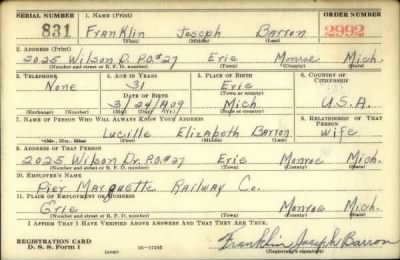 SERIAL NUMBER 1. NAME (Print) ORDER NUMBER
831 Franklin Joseph Barron 2992
(First) (Middle) (Last)
2. ADDRESS (Print)
2025 Wilson D. P.O.#27 Erie Monroe Mich.
(Number and street or R. F. D. number) (Town) (County) (State)
3. TELEPHONE 4. AGE IN YEARS 5. PLACE OF BIRTH 6. COUNTRY OF CITIZENSHIP
None 31 Erie
DATE OF BIRTH (Town or county)
3/24/1909 Mich U.S.A.
(Exchange) (Number) (Mo.) (Day) (Yr.) (State or country)
7. NAME OF PERSON WHO WILL ALWAYS KNOW YOUR ADDRESS 8. RELATIONSHIP OF THAT PERSON
Lucille Elizabeth Barron Wife
(Mr., Mrs., Miss) (First) (Middle) (Last)
9. ADDRESS OF THAT PERSON
2025 Wilson Dr. P.O.#27 Erie Monroe Mich.
(Number and street or R. F. D. number) (Town) (County) (State)
10. EMPLOYER'S NAME
Pier Marquette Railway Co.
11. PLACE OF EMPLOYMENT OR BUSINESS
Erie Monroe Mich.
(Number and street or R. F. D. number) (Town) (County) (State)
I AFFIRM THAT I HAVE VERIFIED ABOVE ANSWERS AND THAT THEY ARE TRUE.
REGISTRATION CARD
D. S. S. Form 1 (over) 16-17105 Franklin Joseph Barron